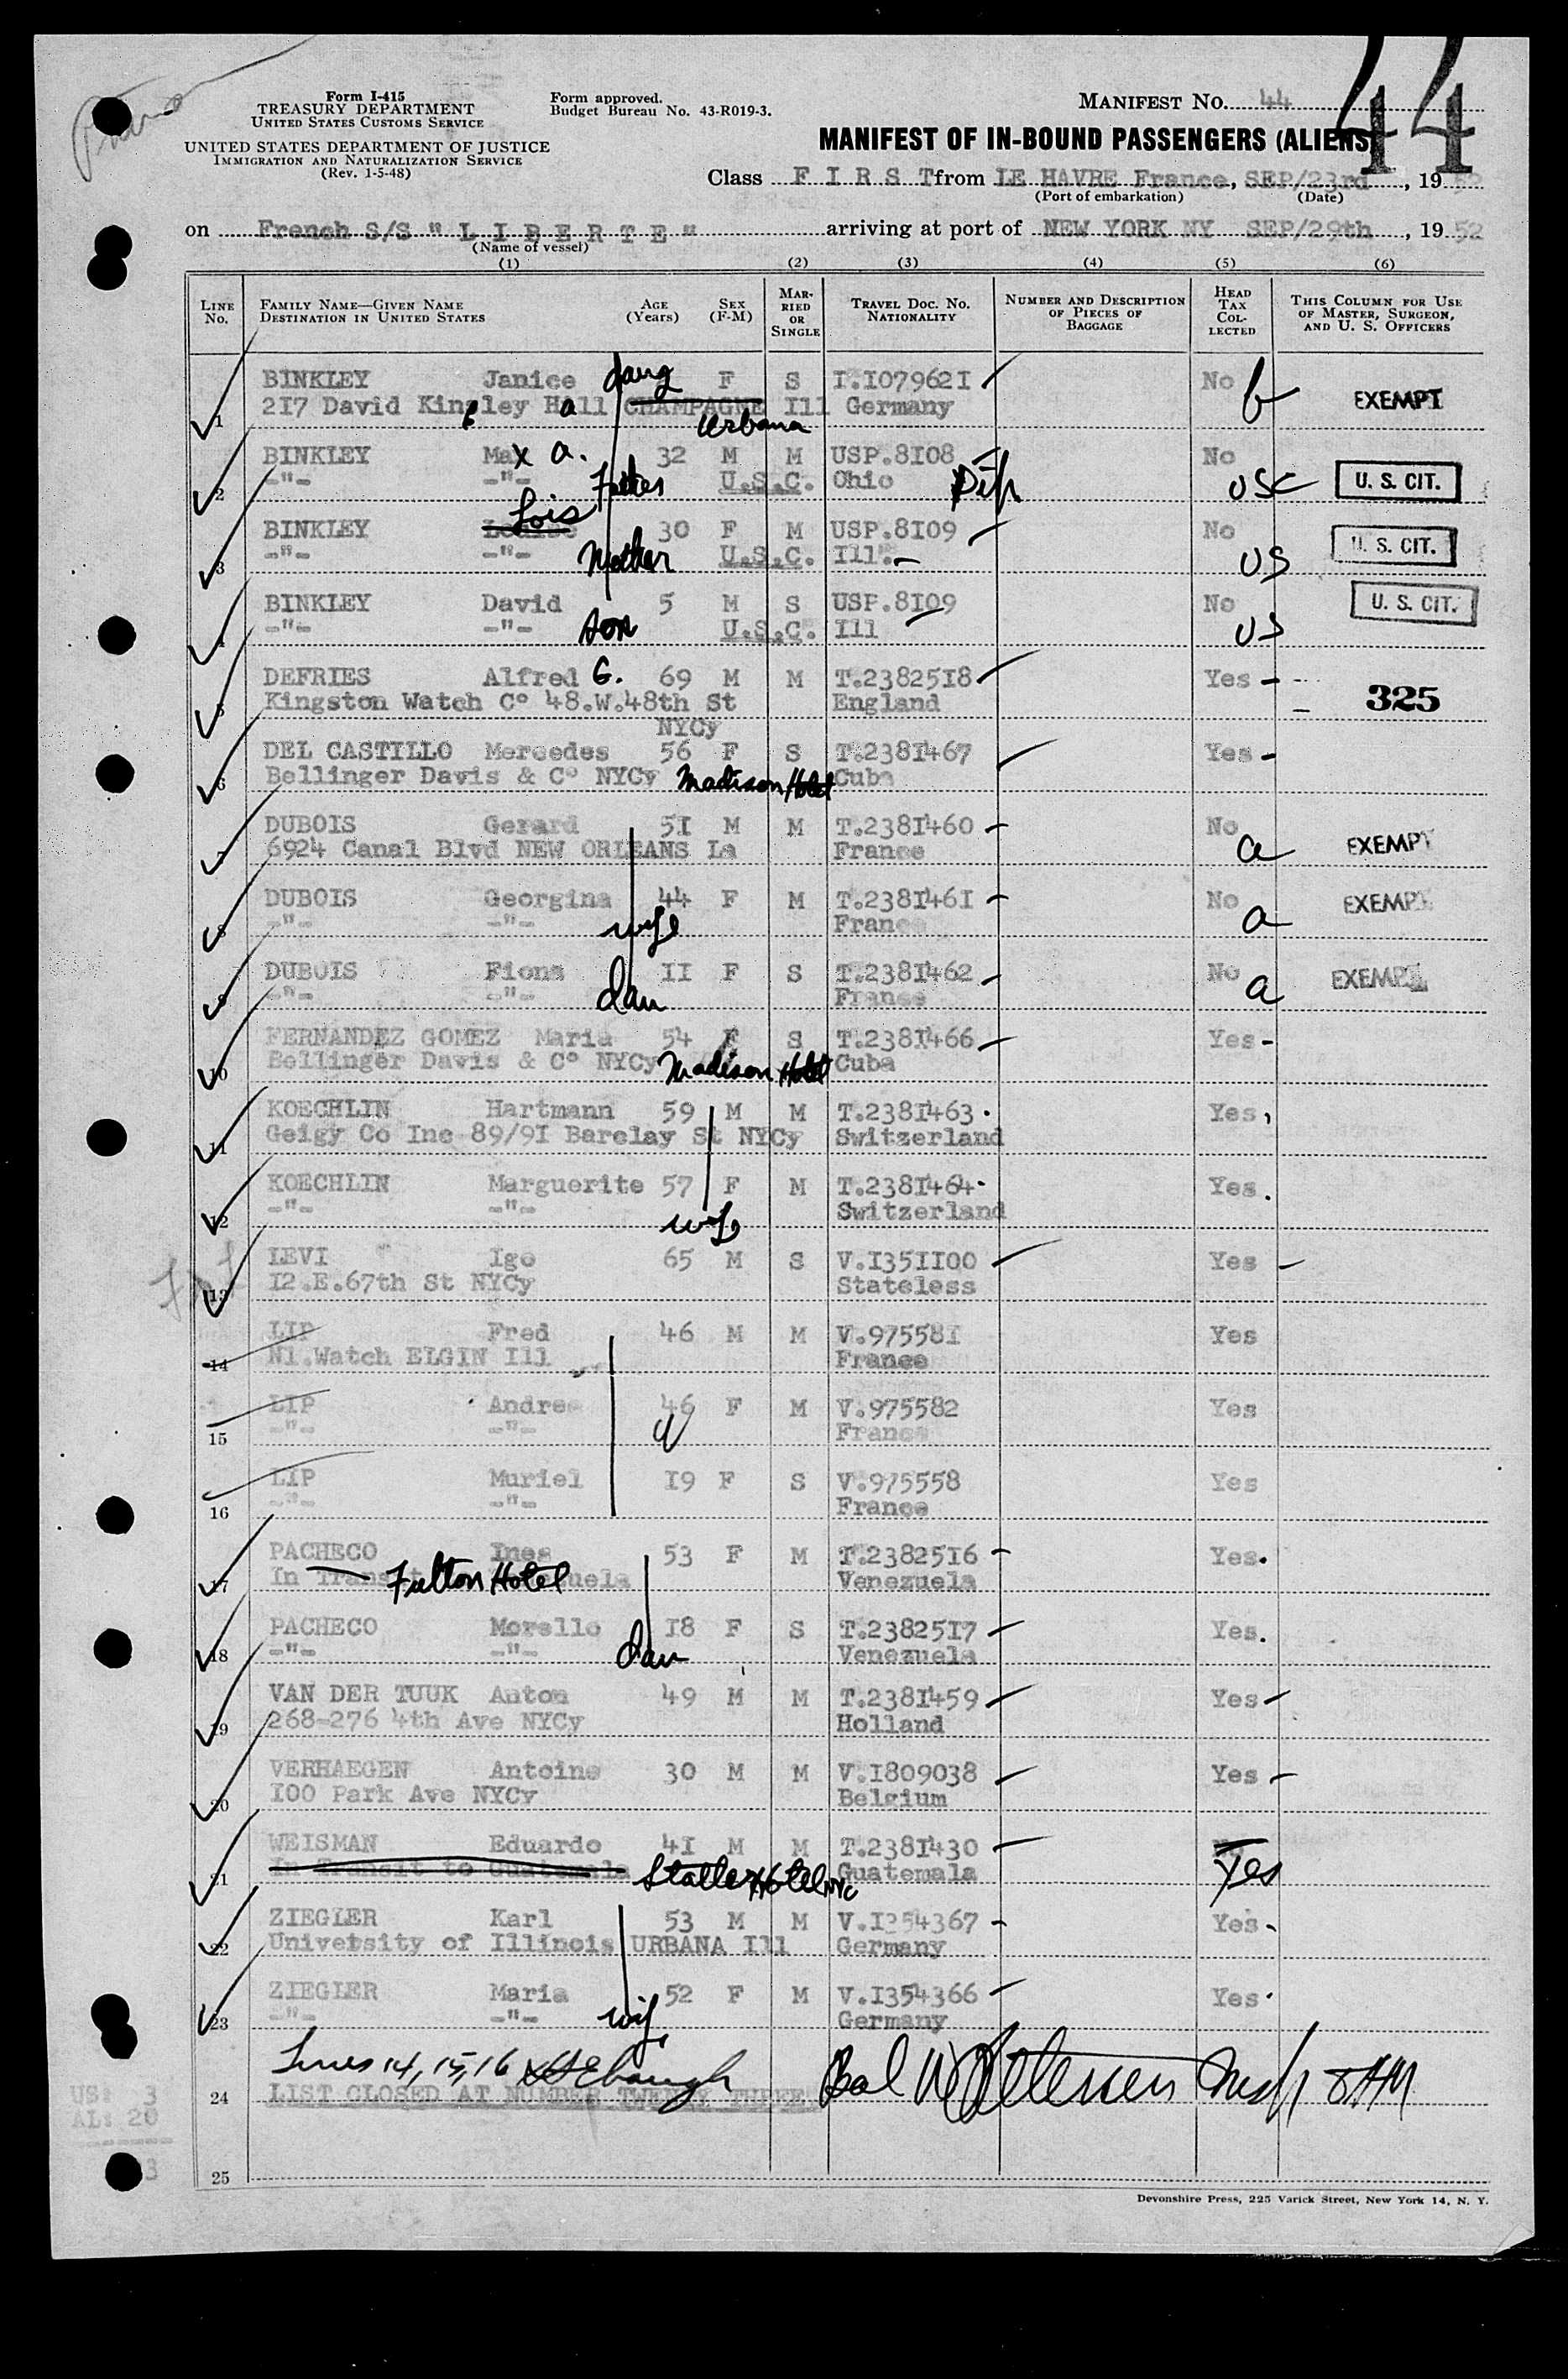 44
Form I-415
TREASURY DEPARTMENT
UNITED STATES CUSTOMS SERVICE
UNITED STATES DEPARTMENT OF JUSTICE
IMMIGRATION AND NATURALIZATION SERVICE
(Rev. 1-5-48)
Form approved.
Budget Bureau No. 43-R019-3.
MANIFEST NO. 44
MANIFEST OF IN-BOUND PASSENGERS (ALIENS)
Class F I R S T from LE HAVRE France, SEP/23rd, 1952
(Port of embarkation) (Date)
on French S/S " L I B E R T E " arriving at port of NEW YORK NY SEP/29th, 1952
(Name of vessel)
(1) (2) (3) (4) (5) (6)
LINE NO. FAMILY NAME—GIVEN NAME DESTINATION IN UNITED STATES AGE (YEARS) SEX (F-M) MARRIED OR SINGLE TRAVEL DOC. NO. NATIONALITY NUMBER AND DESCRIPTION OF PIECES OF BAGGAGE HEAD TAX COLLECTED THIS COLUMN FOR USE OF MASTER, SURGEON, AND U. S. OFFICERS
BINKLEY Janice daug F S I.I07962I No EXEMPT
1 2I7 David Kingley Hall CHAMPAGNE Ill Germany
Urbana
BINKLEY Max a. 32 M M USP.8I08 No
2 -"- -"- Father U.S.C. Ohio USC U. S. CIT.
BINKLEY Lois 30 F M USP.8I09 No
3 -"- -"- Mother U.S.C. Ill. US U. S. CIT.
BINKLEY David 5 M S USP.8I09 No U. S. CIT.
4 -"- -"- son U.S.C. Ill US
DEFRIES Alfred G. 69 M M T.23825I8 Yes 325
5 Kingston Watch C° 48.W.48th St England
NYCy
DEL CASTILLO Mercedes 56 F S T.238I467 Yes
6 Bellinger Davis & C° NYCy Madison Hotel Cuba
DUBOIS Gerard 5I M M T.238I460 No EXEMPT
7 6924 Canal Blvd NEW ORLEANS La France a
DUBOIS Georgina 44 F M T.238I46I No EXEMPT
8 -"- -"- wife France a
DUBOIS Fiona II F S T.238I462 No EXEMPT
9 -"- -"- dau France a
FERNANDEZ GOMEZ Maria 54 F S T.238I466 Yes
10 Bellinger Davis & C° NYCy Madison Hotel Cuba
KOECHLIN Hartmann 59 M M T.238I463 Yes
11 Geigy Co Inc 89/9I Barclay St NYCy Switzerland
KOECHLIN Marguerite 57 F M T.238I464 Yes
12 -"- -"- wife Switzerland
LEVI Igo 65 M S V.I35II00 Yes
13 I2.E.67th St NYCy Stateless
LIP Fred 46 M M V.97558I Yes
14 Nl.Watch ELGIN Ill France
LIP Andree 46 F M V.975582 Yes
15 -"- -"- France
LIP Muriel I9 F S V.975558 Yes
16 -"- -"- France
PACHECO Ines 53 F M T.23825I6 Yes
17 In Transit Fulton Hotel Venezuela
PACHECO Morello I8 F S T.23825I7 Yes
18 -"- -"- dau Venezuela
VAN DER TUUK Anton 49 M M T.238I459 Yes
19 268-276 4th Ave NYCy Holland
VERHAEGEN Antoine 30 M M V.I809038 Yes
20 I00 Park Ave NYCy Belgium
WEISMAN Eduardo 4I M M T.238I430 No
21 In Transit to Guatemala Statler Hotel NYC Guatemala Yes
ZIEGLER Karl 53 M M V.I354367 Yes
22 University of Illinois URBANA Ill Germany
ZIEGLER Maria 52 F M V.I354366 Yes
23 -"- -"- wife Germany
Lines 14, 15, 16
24 LIST CLOSED AT NUMBER TWENTY THREE
US: 3
AL: 20
25
Devonshire Press, 225 Varick Street, New York 14, N. Y.